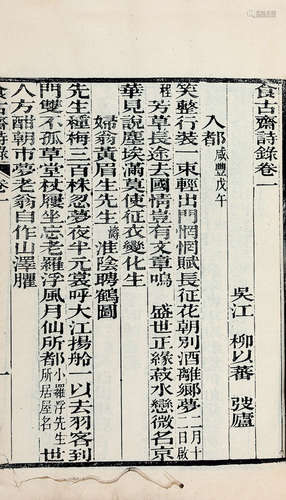 食古齋詩錄卷一
吳江 柳以蕃 弢廬
入都 咸豐戊午
笑整行裝一束輕出門惘惘賦長征花朝別酒離鄉夢 二月十二日啟
程 芳草長途去國情豈有文章鳴 盛世正緣菽水戀微名京
華見說塵埃滿莫使征衣變化生
婦翁黃眉生先生 淮陰聘鶴圖
先生種梅三百株忽夢夜半元裳呼大江揚舲一以去羽客到
門雙不孤草堂杖屨坐忘老羅浮風月仙所都 小羅浮先生所居屋名 世
人方酣朝市夢老翁自作山澤臞
食古齋詩錄 卷一 一